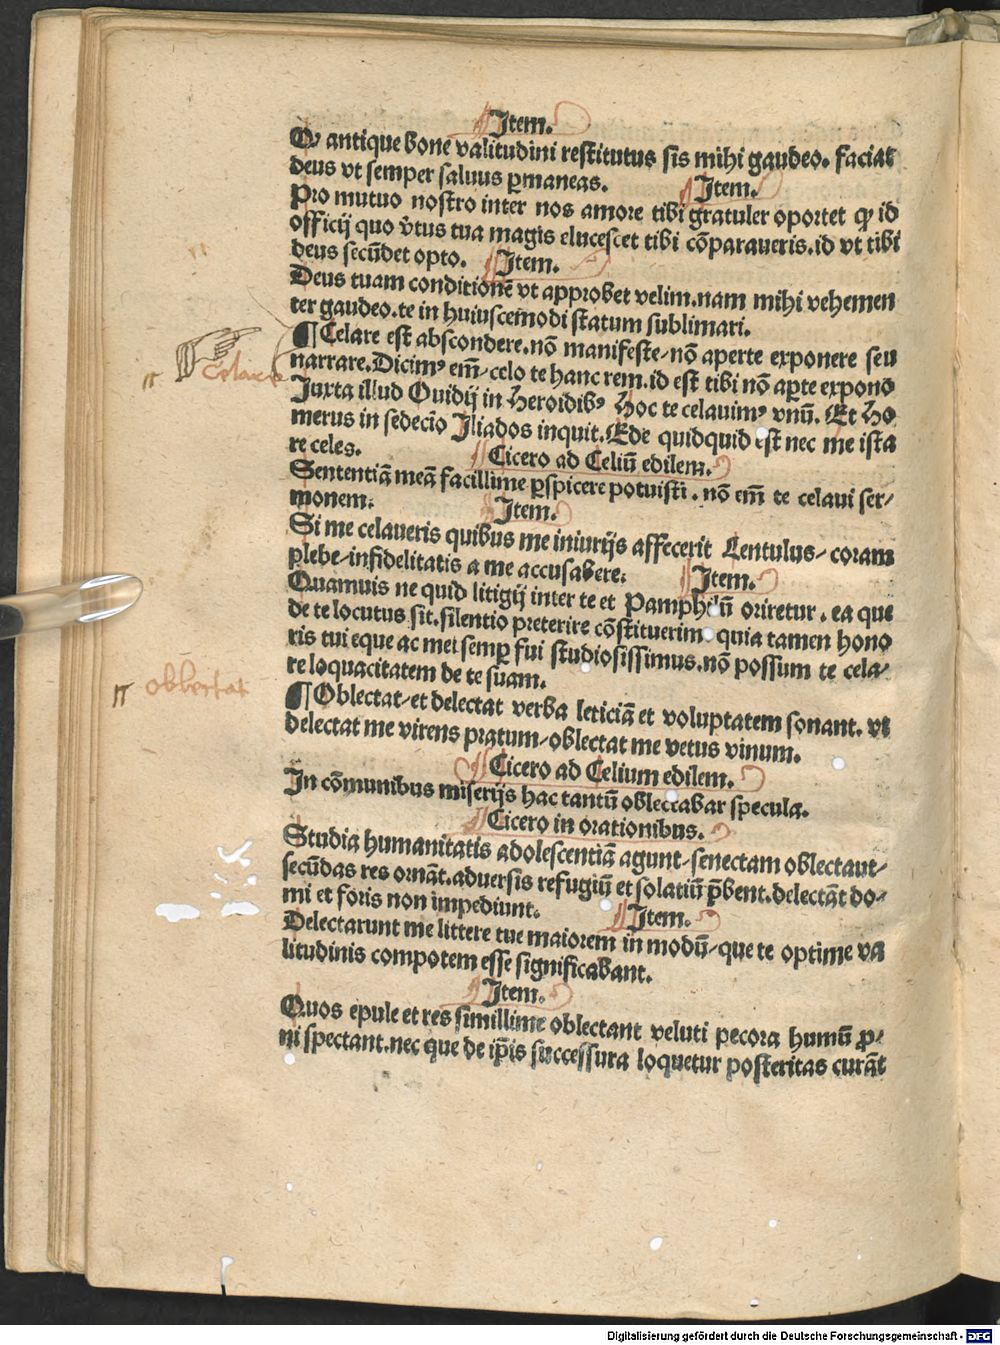 Item.
Qꝙ antique bone valitudini restitutus sis mihi gaudeo. faciat
deus vt semper saluus ꝑmaneas. Item.
Pro mutuo nostro inter nos amore tibi gratuler oportet ꝙ id
officij quo v̾tus tua magis elucescet tibi cōparaueris. id vt tibi
deus secūdet opto. Item.
Deus tuam conditionē vt approbet velim. nam mihi vehemen
ter gaudeo. te in huiuscemodi statum sublimari.
¶ Celare est abscondere. nō manifeste/ nō aperte exponere seu
narrare. Dicimꝰ em̄/ celo te hanc rem. id est tibi nō aꝑte expono
Juxta illud Ouidij in Heroidibꝰ Hoc te celauimꝰ vnū. Et Ho
merus in sedecio Iliados inquit. Ede quidquid est nec me ista
re celes. Cicero ad Celiū edilem.
Sententiā meā facillime ꝑspicere potuisti. nō em̄ te celaui ser/
monem. Item.
Si me celaueris quibus me iniurijs affecerit Lentulus/ coram
plebe/ infidelitatis a me accusabere. Item.
Quamuis ne quid litigij inter te et Pamphilū oriretur. ea que
de te locutus sit. silentio preterire cōstituerim quia tamen hono
ris tui eque ac mei semꝑ fui studiosissimus. nō possum te cela/
re loquacitatem de te suam.
¶ Oblectat/ et delectat verba leticiā et voluptatem sonant. vt
delectat me virens pratum/ oblectat me vetus vinum.
Cicero ad Celium edilem.
In cōmunibus miserijs hac tantū oblectabar specula.
Cicero in orationibus.
Studia humanitatis adolescentiā agunt/ senectam oblectant/
secūdas res ornāt. aduersis refugiū et solatiū p̄bent. delectāt do/
mi et foris non impediunt. Item.
Delectarunt me littere tue maiorem in modū/ que te optime va
litudinis compotem esse significabant.
Item.
Quos epule et res simillime oblectant veluti pecora humū ꝓ/
ni spectant. nec que de ip̄is successura loquetur posteritas curāt
Celare
oblectat
Digitalisierung gefördert durch die Deutsche Forschungsgemeinschaft - DFG